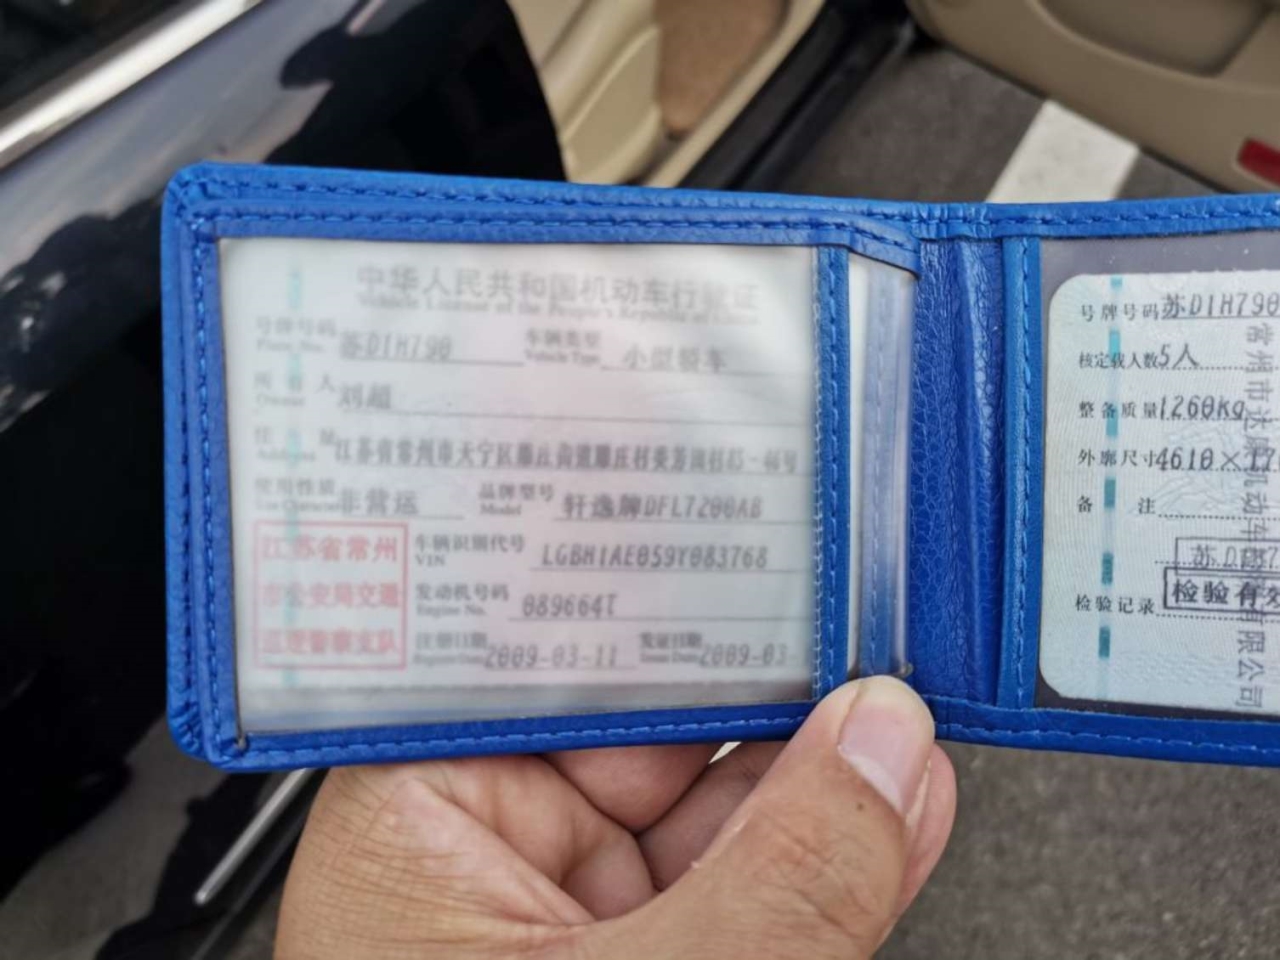 中华人民共和国机动车行驶证
Vehicle License of the People's Republic of China
号牌号码 苏D1H790 车辆类型 小型轿车
Plate No. Vehicle Type
所有人 刘超
Owner
住址 江苏省常州市天宁区
Address
使用性质 非营运 品牌型号 轩逸牌DFL7200AB
Use Character Model
江苏省常州
市公安局交通
巡逻警察支队
车辆识别代号 LGBH1AE059Y083768
VIN
发动机号码 089664T
Engine No.
注册日期 2009-03-11 发证日期 2009-03-
Register Date Issue Date
号牌号码 苏D1H790
核定载人数 5人
整备质量 1260kg
外廓尺寸 4610×17
备注
苏.D
检验记录 检验有